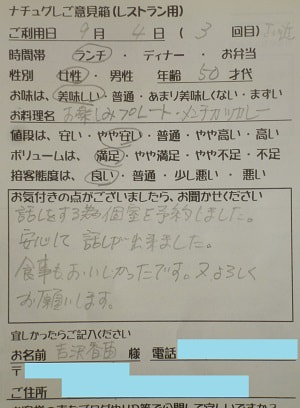 ナチュグレご意見箱(レストラン用)
ご利用日 9月 4日 ( 3 回目)
時間帯 ランチ ・ ディナー ・ お弁当
性別 女性 ・ 男性 年齢 50 才代
お味は、美味しい・普通・あまり美味しくない・まずい
お料理名 お楽しみプレート・メンチカツカレー
値段は、安い・やや安い・普通・やや高い・高い
ボリュームは、満足・やや満足・やや不足・不足
接客態度は、良い・普通・少し悪い・悪い
お気付きの点がございましたら、お聞かせください
話しをする為個室を予約しました。
安心して話しが出来ました。
食事もおいしかったです。又よろしく
お願いします。
宜しかったらご記入ください
お名前 吉沢香苗 様 電話
〒
ご住所